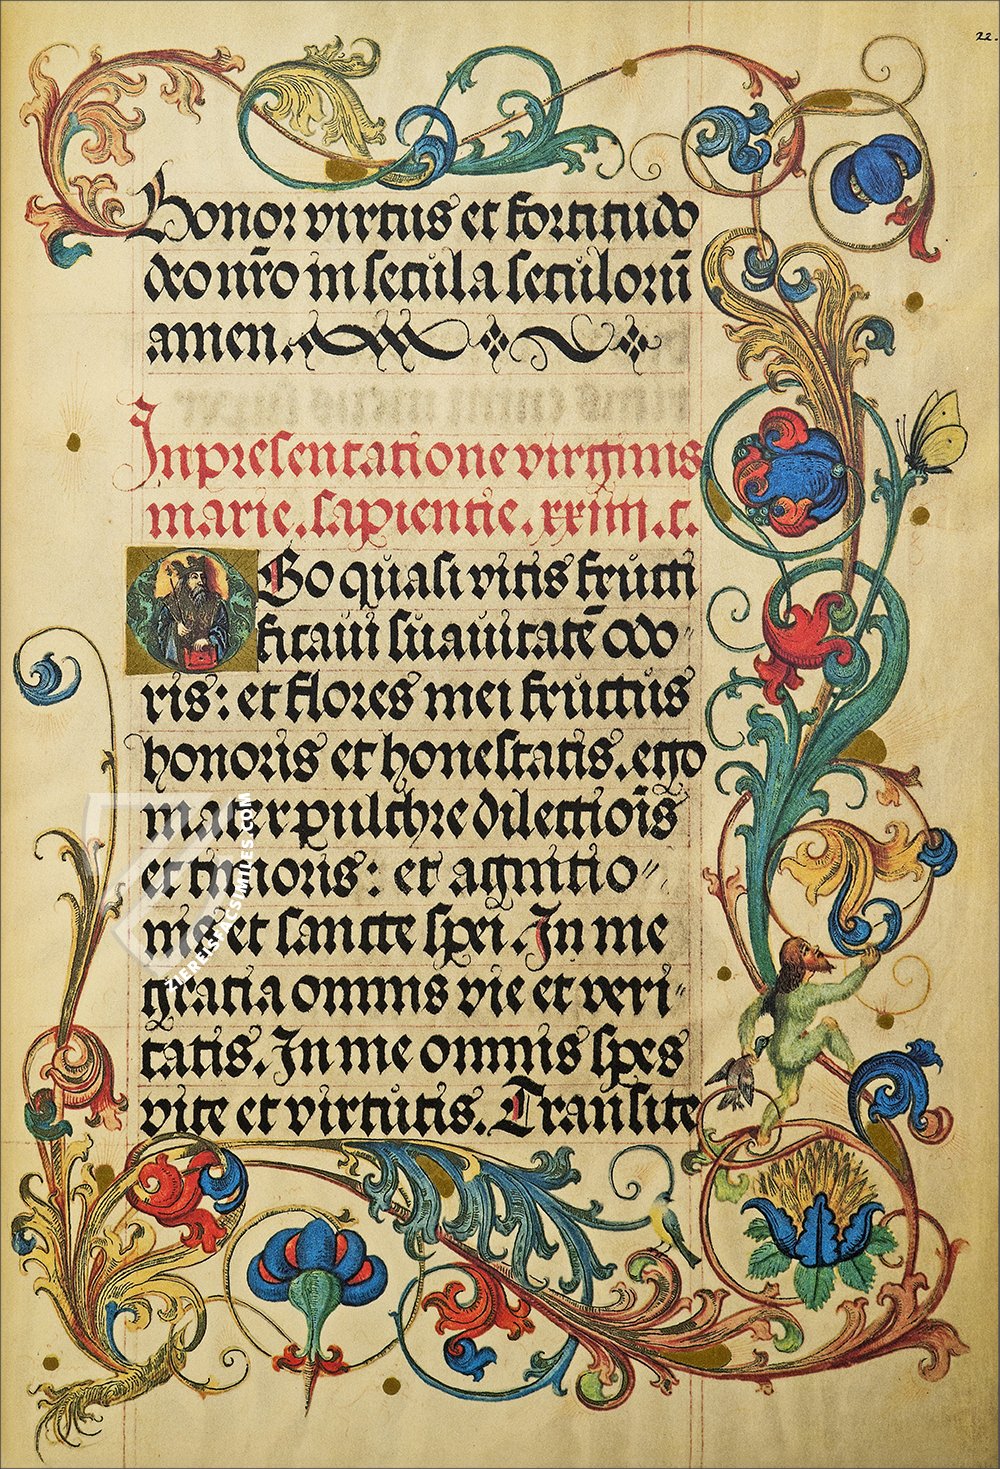 22.
Honor virtus et fortitudo
deo nr̄o in secula seculorū
amen.
In presentatione virginis
marie. sapientie. xxiiij. c.
Ego quasi vitis fructi
ficaui suauitatē odo〃
ris: et flores mei fructus
honoris et honestatis. ego
mater pulchre dilectiōis
et timoris: et agnitio〃
nis et sancte spei. In me
gratia omnis vie et veri〃
tatis. In me omnis spes
vite et virtutis. Transite
ZIEREIS FACSIMILES.COM